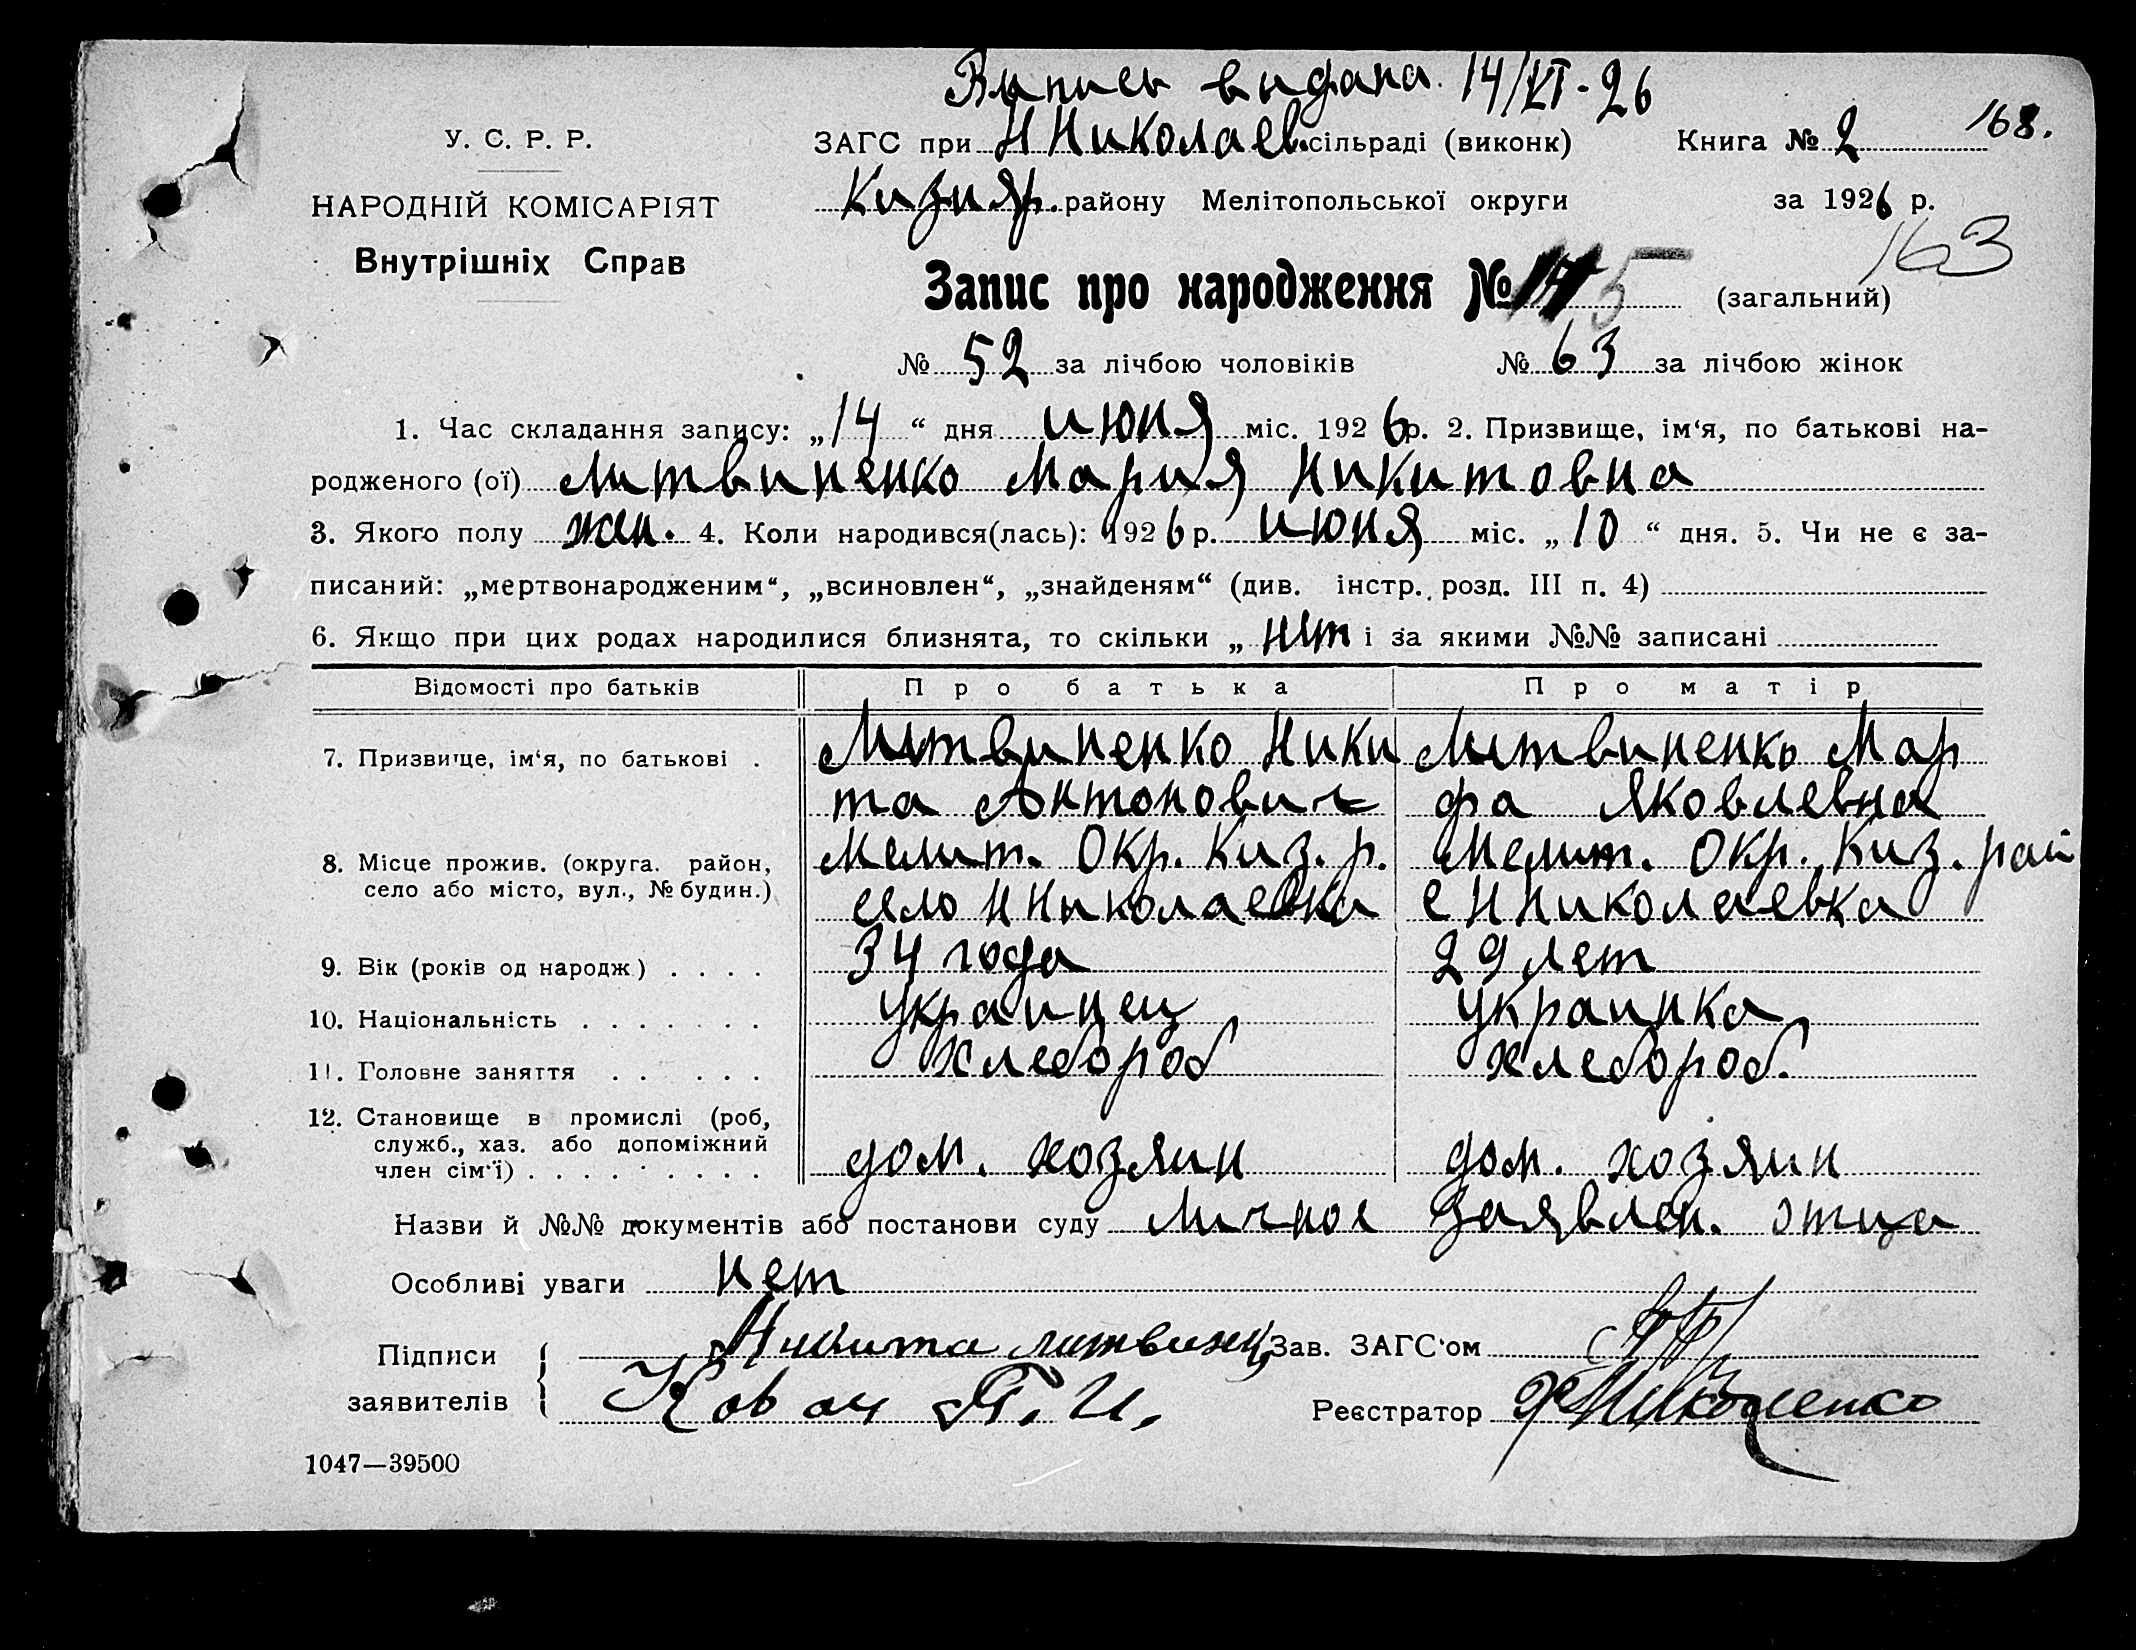 Выпись видана. 14/VI-26
168.
У. С. Р. Р.
ЗАГС при Н Николаев. сільраді (виконк) Книга № 2
НАРОДНІЙ КОМІСАРІЯТ
Кизияр. району Мелітопольської округи за 1926 р.
Внутрішніх Справ
163
Запис про народження № 5 (загальний)
№ 52 за лічбою чоловіків № 63 за лічбою жінок
1. Час складання запису: „14“ дня июня міс. 1926 р. 2. Призвище, ім‘я, по батькові на-
родженого (ої) Литвиненко Мария Никитовна
3. Якого полу жен. 4. Коли народився(лась): 1926 р. июня міс. „10“ дня. 5. Чи не є за-
писаний: „мертвонародженим“, „всиновлен“, „знайденям“ (див. інстр. розд. III п. 4)
6. Якщо при цих родах народилися близнята, то скільки „ нет і за якими №№ записані
Відомості про батьків Про батька Про матір
7. Призвище, ім‘я, по батькові . Литвиненко Ники Литвиненко Мар
та Антонович фа Яковлевна
8. Місце прожив. (округа. район, Мелит. Окр. Киз. р. Мелит. Окр. Киз. рай
село або місто, вул., № будин.) село Н Николаевка с Н Николаевка
9. Вік (років од народж) . . . . 34 года 29 лет
10. Національність . . . . . . . украинец украинка
11. Головне заняття . . . . . хлебороб хлебороб.
12. Становище в промислі (роб,
служб., хаз. або допоміжний
член сім‘ї) . . . . . . . . . дом. хозяин дом. хозяин
Назви й №№ документів або постанови суду Личное заявлен. отца
Особливі уваги нет
Підписи Никита литвинец Зав. ЗАГС‘ом
заявителів Ковач П. И. Реєстратор
1047—39500